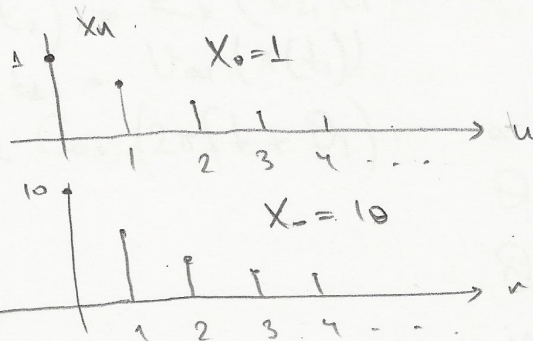 Xn
1 X₀ = 1
n
1 2 3 4 . . . .
10
X₀ = 10
n
1 2 3 4 . . .